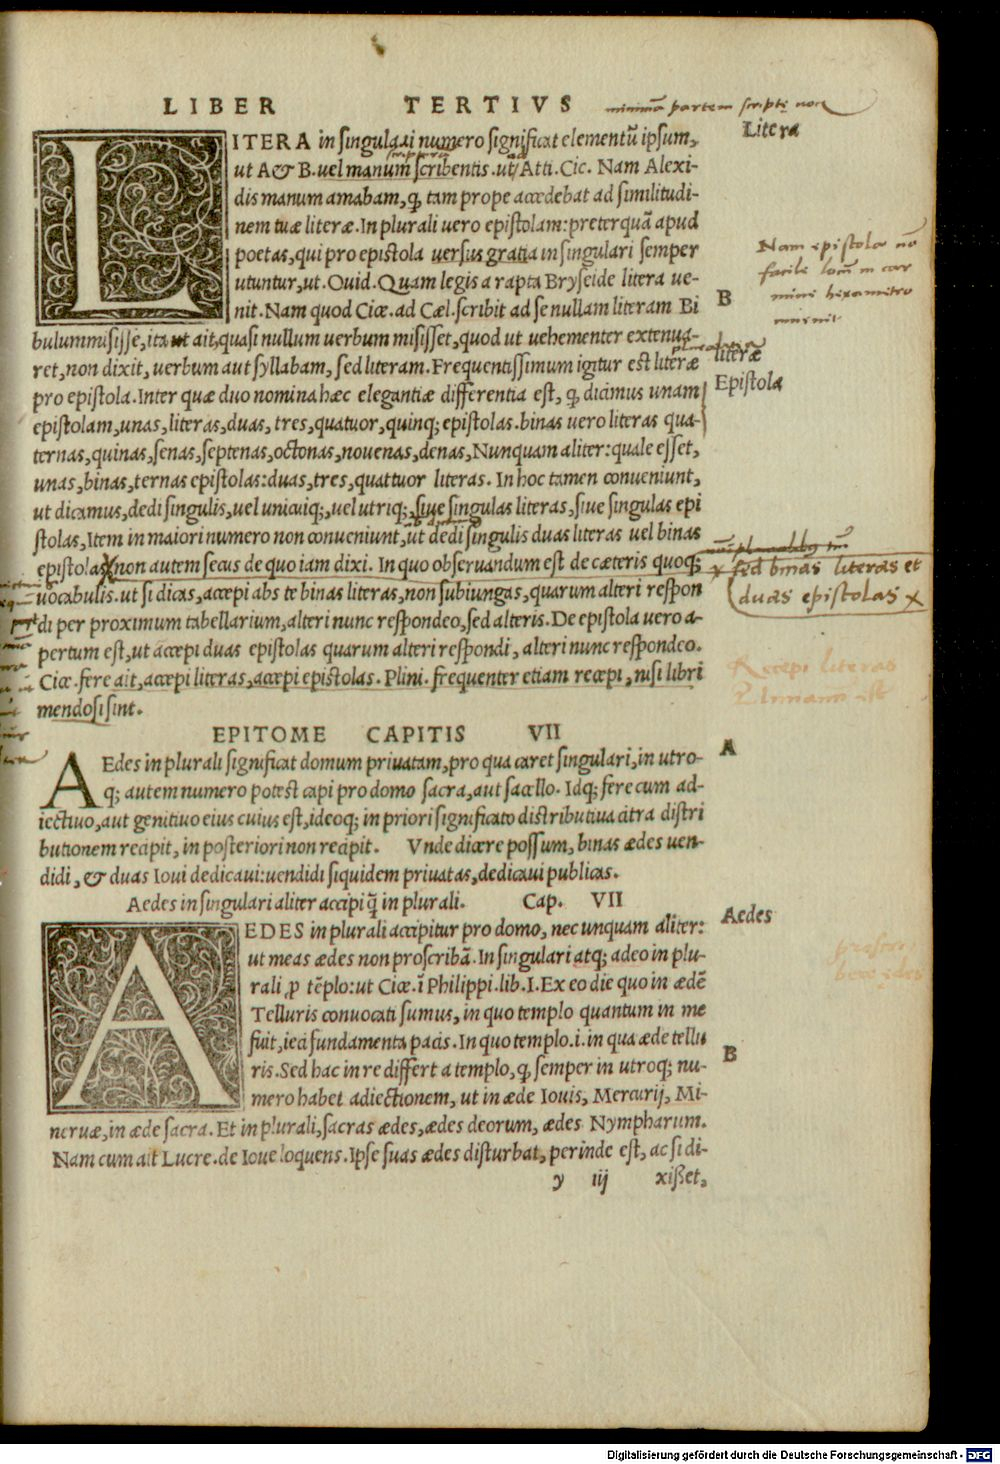 LIBER TERTIVS
minimā partem scripti non
Litera
LITERA in singulari numero significat elementū ipsum,
ut A & B. uel manum scribentis. ut Atti. Cic. Nam Alexi-
dis manum amabam, q, tam prope accedebat ad similitudi-
nem tuæ literæ. In plurali uero epistolam: preterquā apud
poetas, qui pro epistola uersus gratia in singulari semper
utuntur, ut. Ouid. Quam legis a rapta Bryseide litera ue-
nit. Nam quod Cice. ad Cæl. scribit ad se nullam literam Bi
bulum misisse, ita ut ait, quasi nullum uerbum misisset, quod ut uehementer extenua-
ret, non dixit, uerbum aut syllabam, sed literam. Frequentissimum igitur est literæ
pro epistola. Inter quæ duo nomina hæc elegantiæ differentia est, q, dicimus unam
epistolam, unas, literas, duas, tres, quatuor, quinq; epistolas. binas uero literas qua-
ternas, quinas, senas, septenas, octonas, nouenas, denas, Nunquam aliter: quale esset,
unas, binas, ternas epistolas: duas, tres, quattuor literas. In hoc tamen conueniunt,
ut dicamus, dedi singulis, uel unicuiq;, uel utriq;, siue singulas literas, siue singulas epi
stolas, Item in maiori numero non conueniunt, ut dedi singulis duas literas uel binas
epistolas, non autem secus de quo iam dixi. In quo obseruandum est de cæteris quoq;
uocabulis. ut si dicas, accepi abs te binas literas, non subiungas, quarum alteri respon
di per proximum tabellarium, alteri nunc respondeo, sed alteris. De epistola uero a-
pertum est, ut accepi duas epistolas quarum alteri respondi, alteri nunc respondeo.
Cice. fere ait, accepi literas, accepi epistolas. Plini. frequenter etiam recepi, nisi libri
mendosi sint.
Nam epistola nō
facile
mini hexametro
B
literæ
Epistola
sed binas literas et
duas epistolas X
Recepi literas
EPITOME CAPITIS VII
A
AEdes in plurali significat domum priuatam, pro qua caret singulari, in utro-
q; autem numero potest capi pro domo sacra, aut sacello. Idq; fere cum ad-
iectiuo, aut genitiuo eius cuius est, ideoq; in priori significato distributiua citra distri
butionem recipit, in posteriori non recipit. Vnde dicere possum, binas ædes uen-
didi, & duas Ioui dedicaui: uendidi siquidem priuatas, dedicaui publicas.
Aedes in singulari aliter accipi q̄ in plurali. Cap. VII
Aedes
AEDES in plurali accipitur pro domo, nec unquam aliter:
ut meas ædes non proscribā. In singulari atq; adeo in plu-
rali, p tēplo: ut Cice. ī Philippi. lib. I. Ex eo die quo in ædē
Telluris conuocati sumus, in quo templo quantum in me
fuit, ieci fundamenta pacis. In quo templo .i. in qua æde tellu
ris. Sed hac in re differt a templo, q, semper in utroq; nu-
mero habet adiectionem, ut in æde Iouis, Mercurij, Mi-
neruæ, in æde sacra. Et in plurali, sacras ædes, ædes deorum, ædes Nympharum.
Nam cum ait Lucre. de Ioue loquens. Ipse suas ædes disturbat, perinde est, ac si di-
B
y iij xisset,
Digitalisierung gefördert durch die Deutsche Forschungsgemeinschaft - DFG